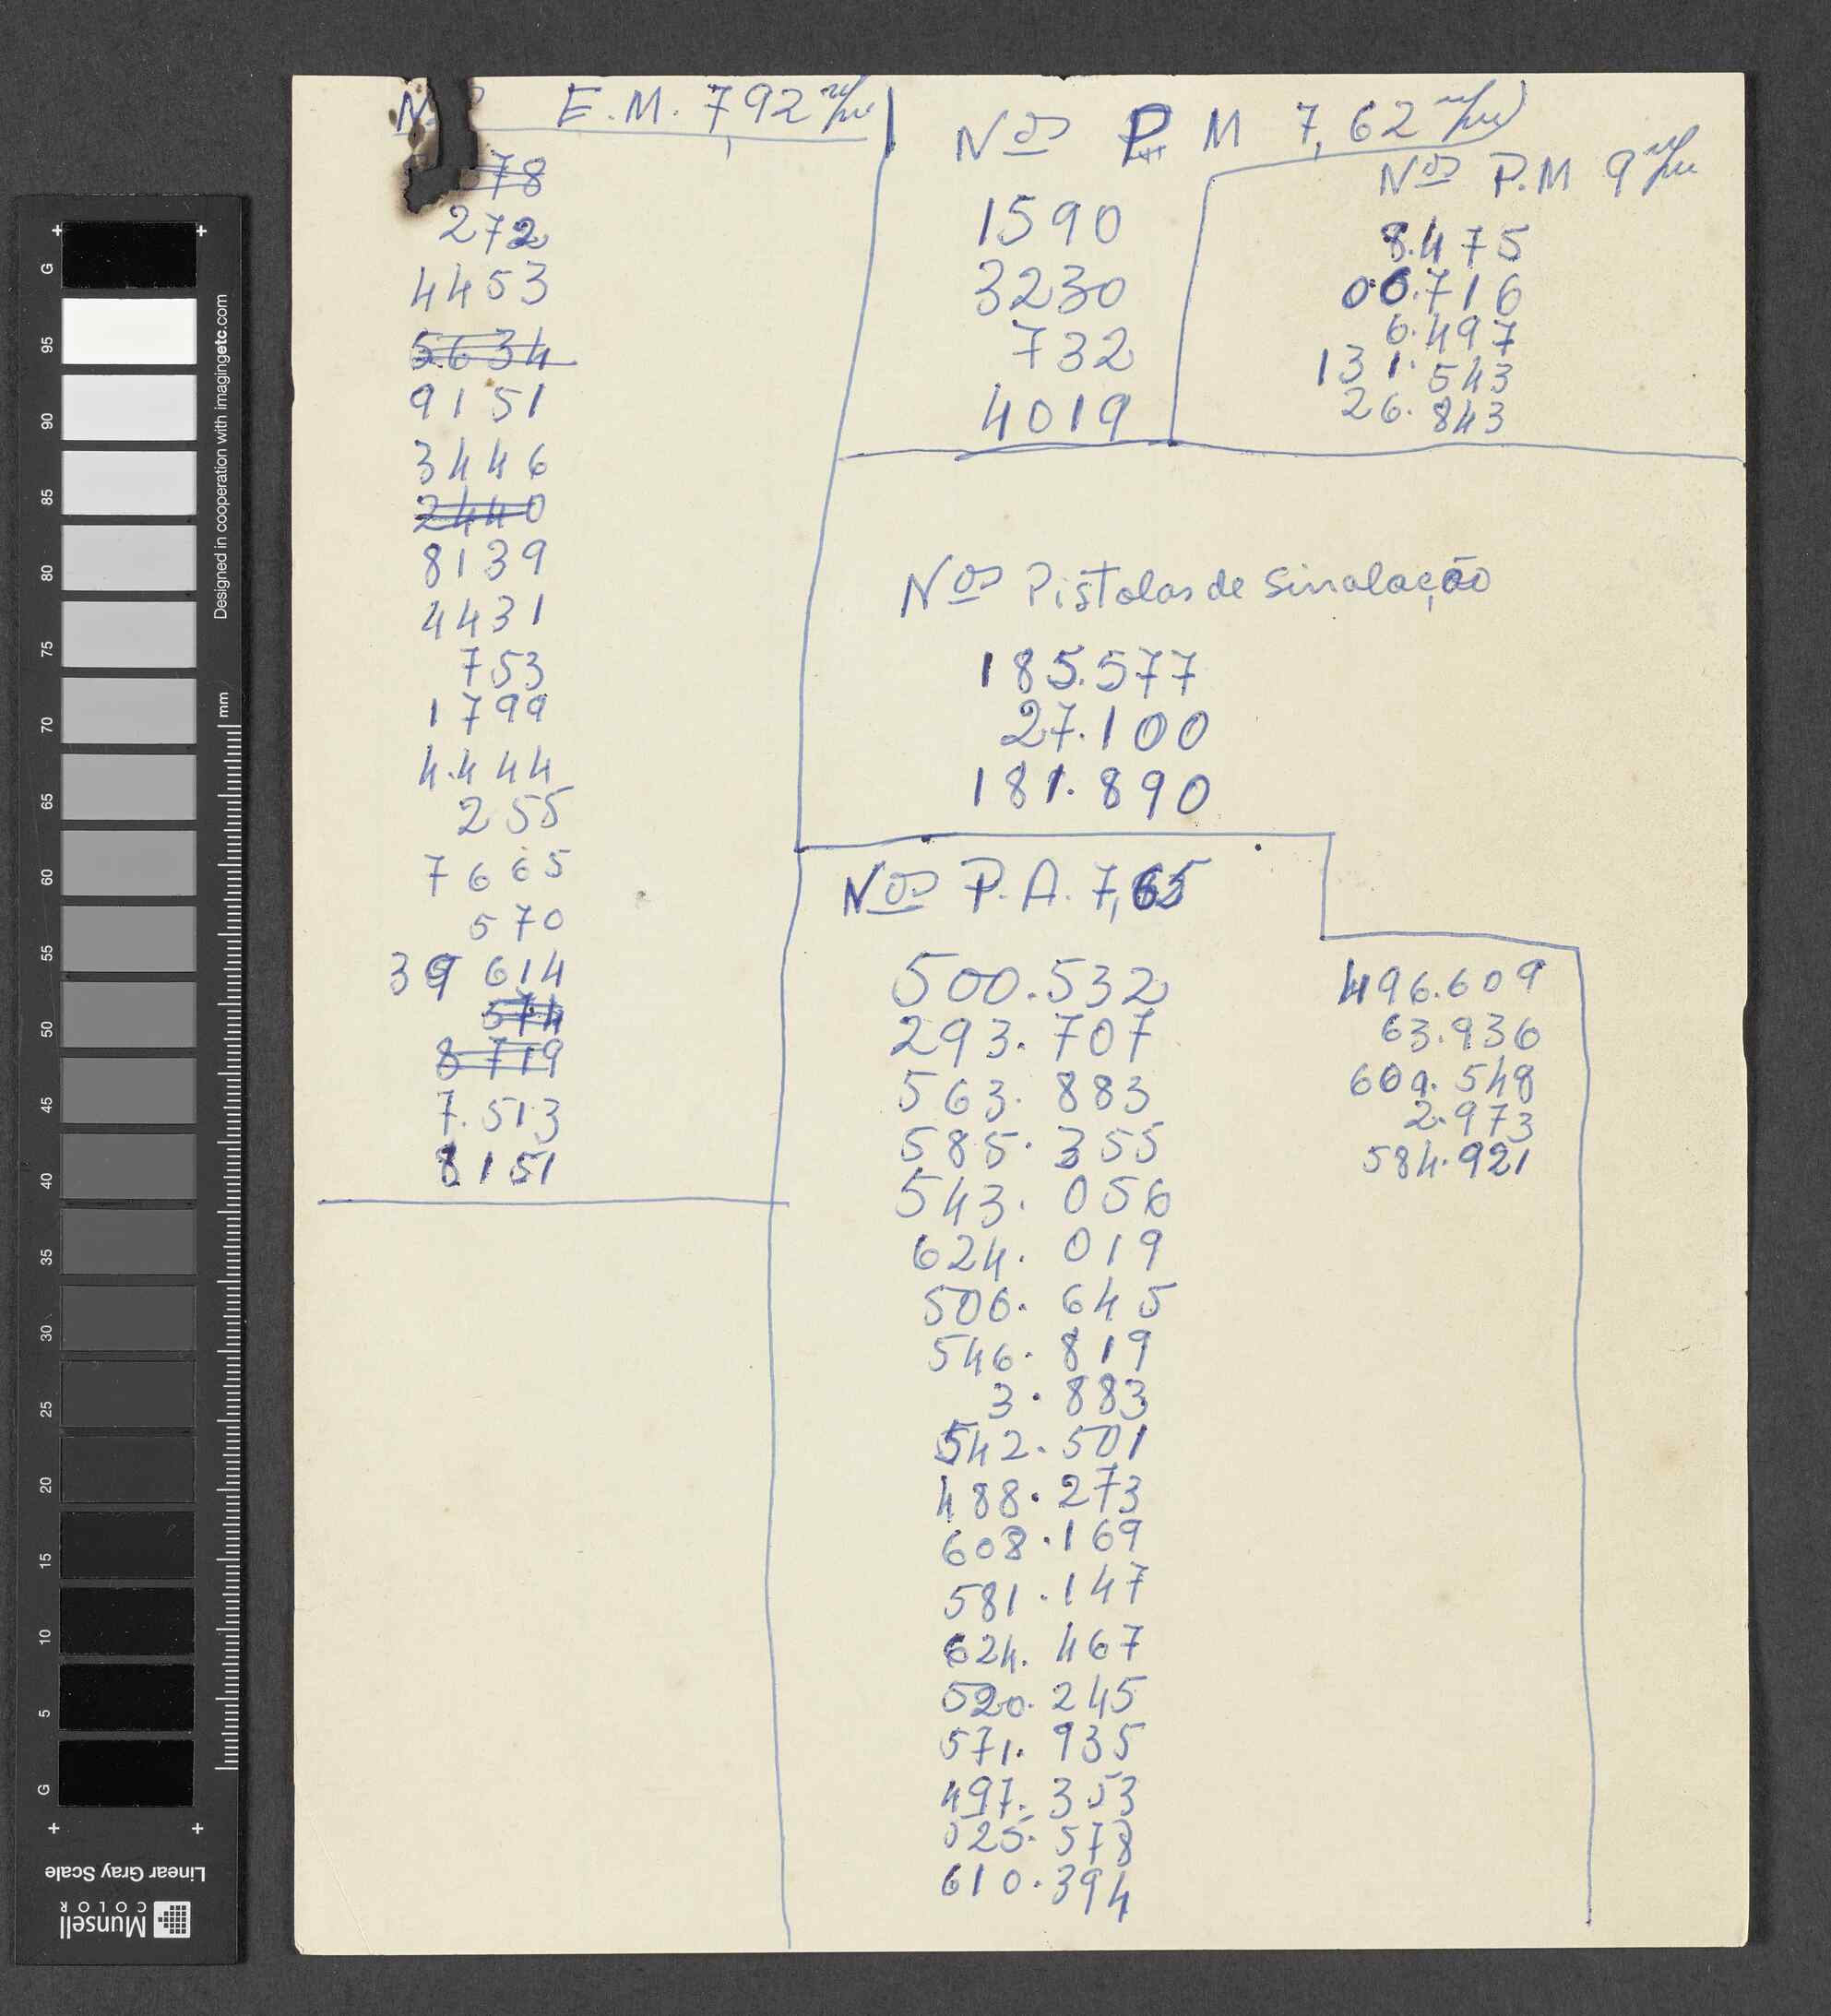 Nos E.M. 7,92 m/m
78
272
4453
5634
9151
3446
2440
8139
4431
753
1799
4.444
255
7665
570
39 614
574
8719
7.513
8151
Nos P M 7,62 m/m
1590
3230
732
4019
Nos P.M 9 m/m
8.475
06.716
6.497
131.543
26.843
Nos Pistolas de Sinalação
185.577
27.100
181.890
Nos P.A. 7,65
500.532
293.707
563.883
585.355
543.056
624.019
506.645
546.819
3.883
542.501
488.273
608.169
581.147
624.467
520.245
571.935
497.353
525.578
610.394
496.609
63.936
609.548
2.973
584.921
Designed in cooperation with imagingetc.com
mm
G
95
90
85
80
75
70
65
60
55
50
45
40
35
30
25
20
15
10
5
G
Linear Gray Scale
Munsell
COLOR